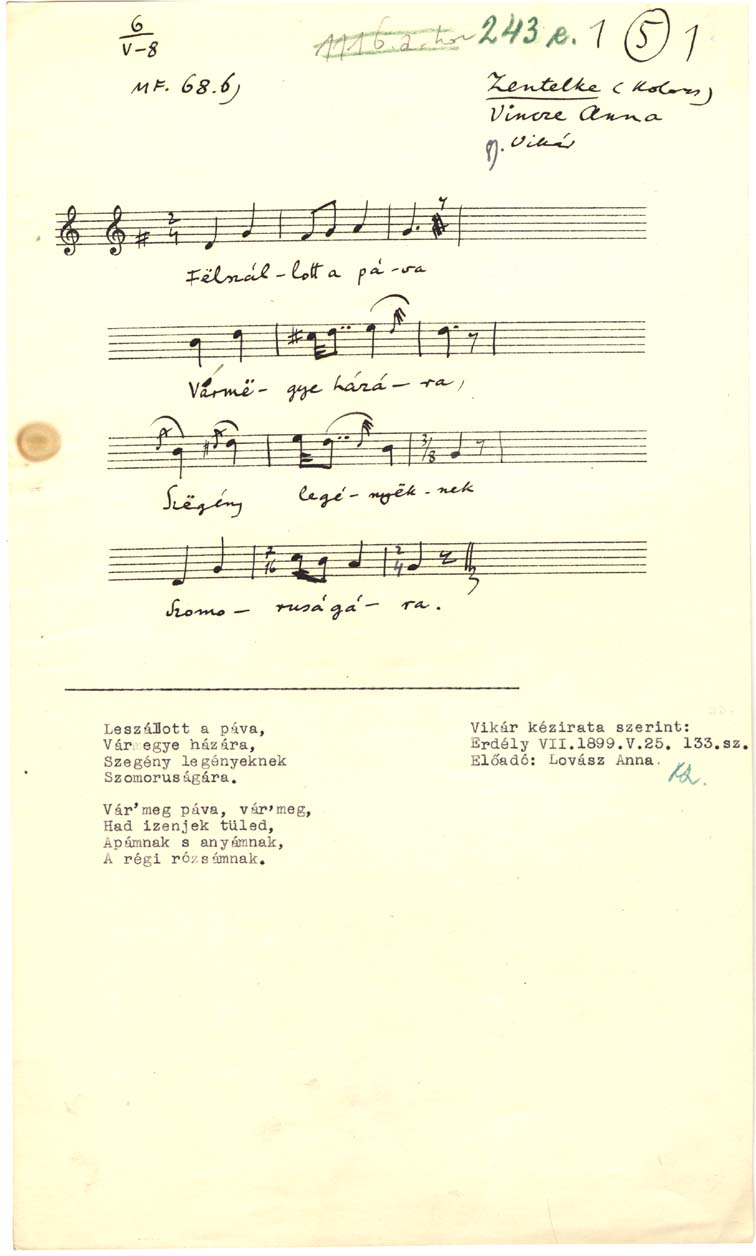 6
V-8
1116.a.
243 e. 1 5 1
MF. 68.b)
Zentelke (Kolozs)
Vincze Anna
gy. Vikár
2
4
Fëlszál-lott a pá-va
Vármë- gye házá-ra,
3/8
Szëgény legé-nyëk-nek
7
16
2
4
Szomo- ruságá- ra.
Leszállott a páva,
Vármegye házára,
Szegény legényeknek
Szomoruságára.
Vár'meg páva, vár'meg,
Had izenjek tüled,
Apámnak s anyámnak,
A régi rózsámnak.
Vikár kézirata szerint:
Erdély VII.1899.V.25. 133.sz.
Előadó: Lovász Anna.